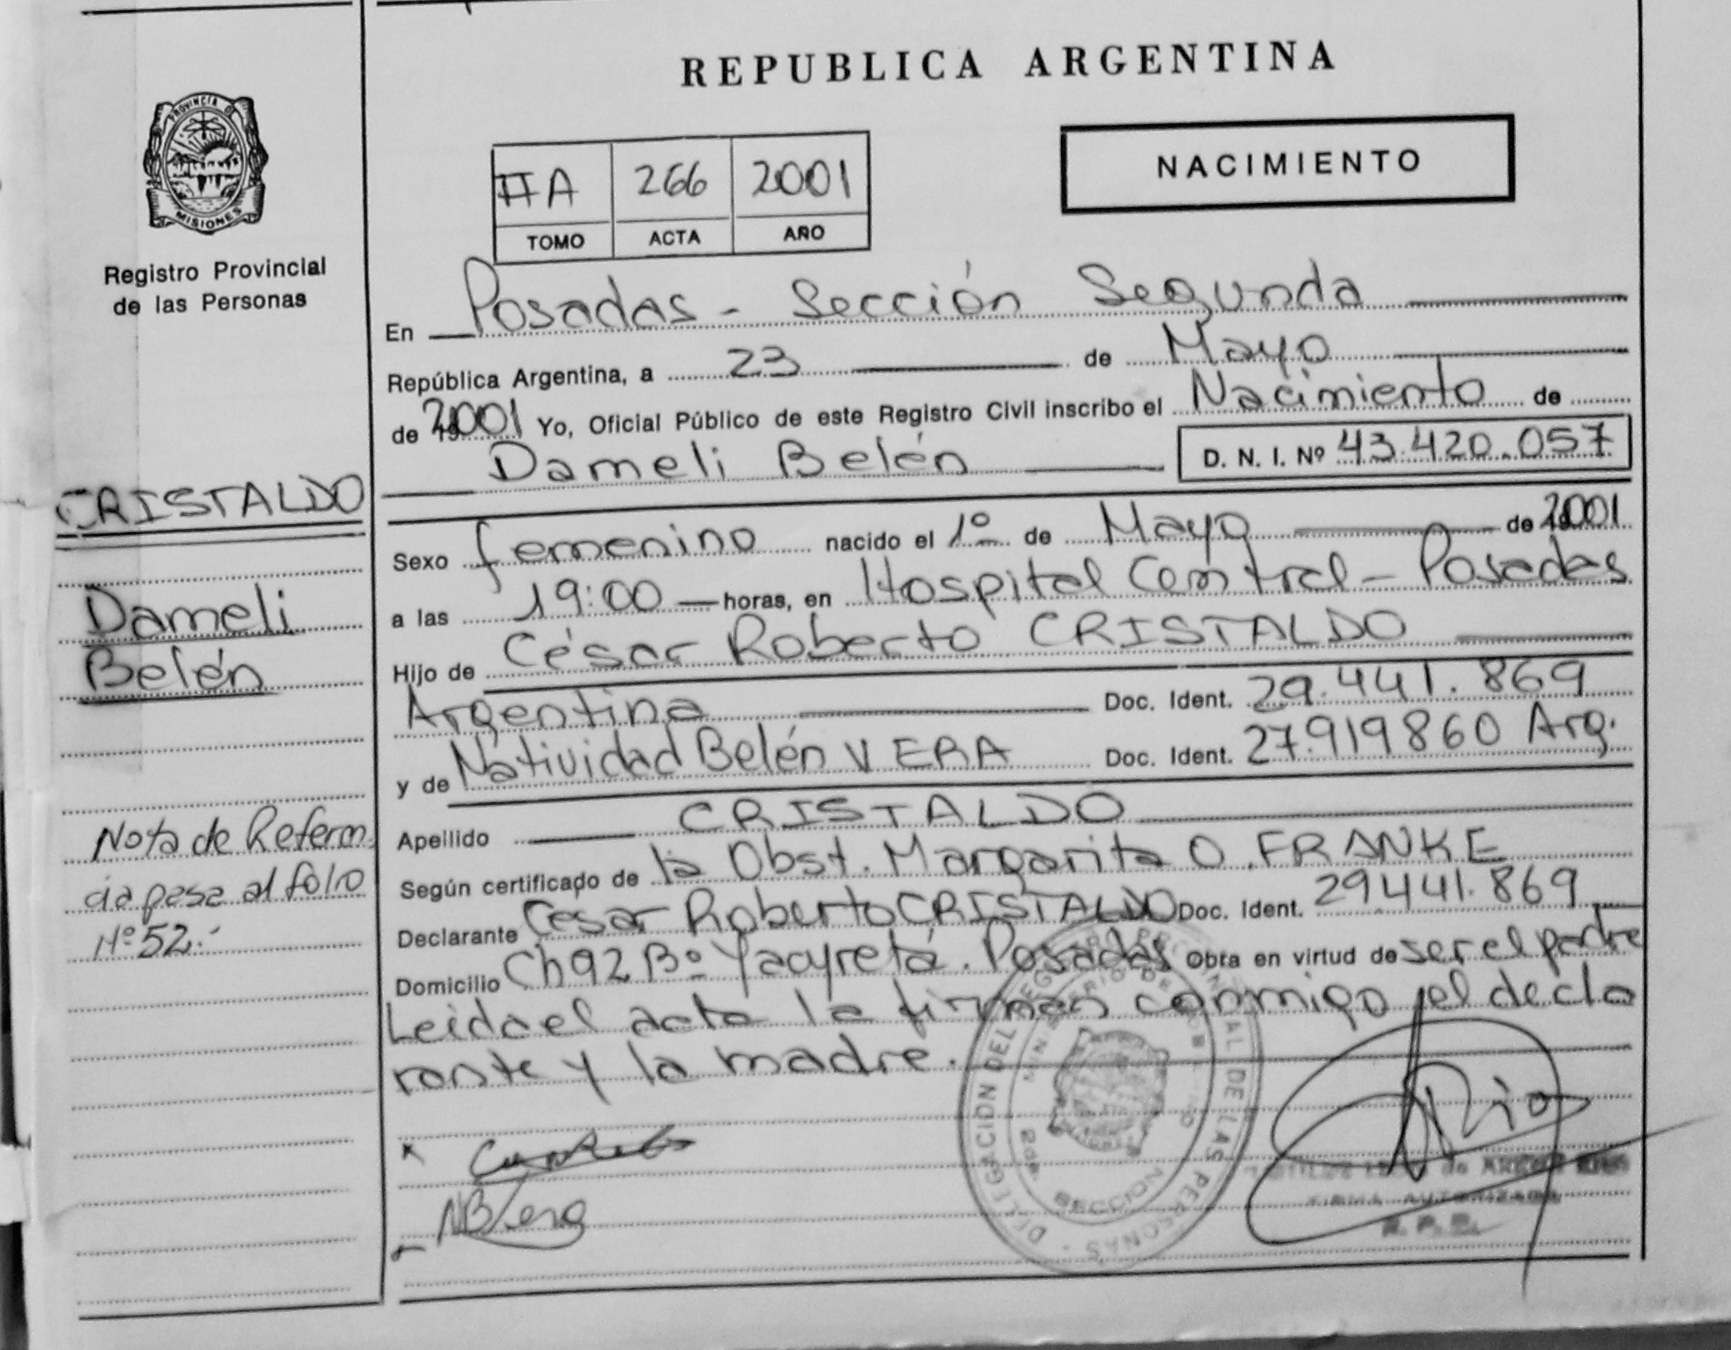 REPUBLICA ARGENTINA
PROVINCIA DE
MISIONES
Registro Provincial
de las Personas
NACIMIENTO
IIA 266 2001
TOMO ACTA AÑO
En Posadas - Sección Segunda
República Argentina, a 23 de Mayo
de 2001 Yo, Oficial Público de este Registro Civil inscribo el Nacimiento de
Dameli Belén D. N. I. Nº 43.420.057
CRISTALDO
Dameli
Belén
Nota de Referen
cia pasa al folio
Nº 52.-
Sexo femenino nacido el 1º de Mayo de 2001
a las 19:00 horas, en Hospital Central - Posadas
Hijo de César Roberto CRISTALDO
Argentina Doc. Ident. 29.441.869
y de Natividad Belén VERA Doc. Ident. 27.919860 Arg.
Apellido CRISTALDO
Según certificado de la Obst. Margarita O. FRANKE
Declarante César Roberto CRISTALDO Doc. Ident. 29441.869
Domicilio Ch 92 Bº Yacyretá. Posadas Obra en virtud de ser el padre
Leida el acta la firman conmigo el decla
rante y la madre.
DELEGACION DEL REGISTRO PROVINCIAL DE LAS PERSONAS
SECCION
NBVera
FIRMA AUTORIZADA
R. P. P.